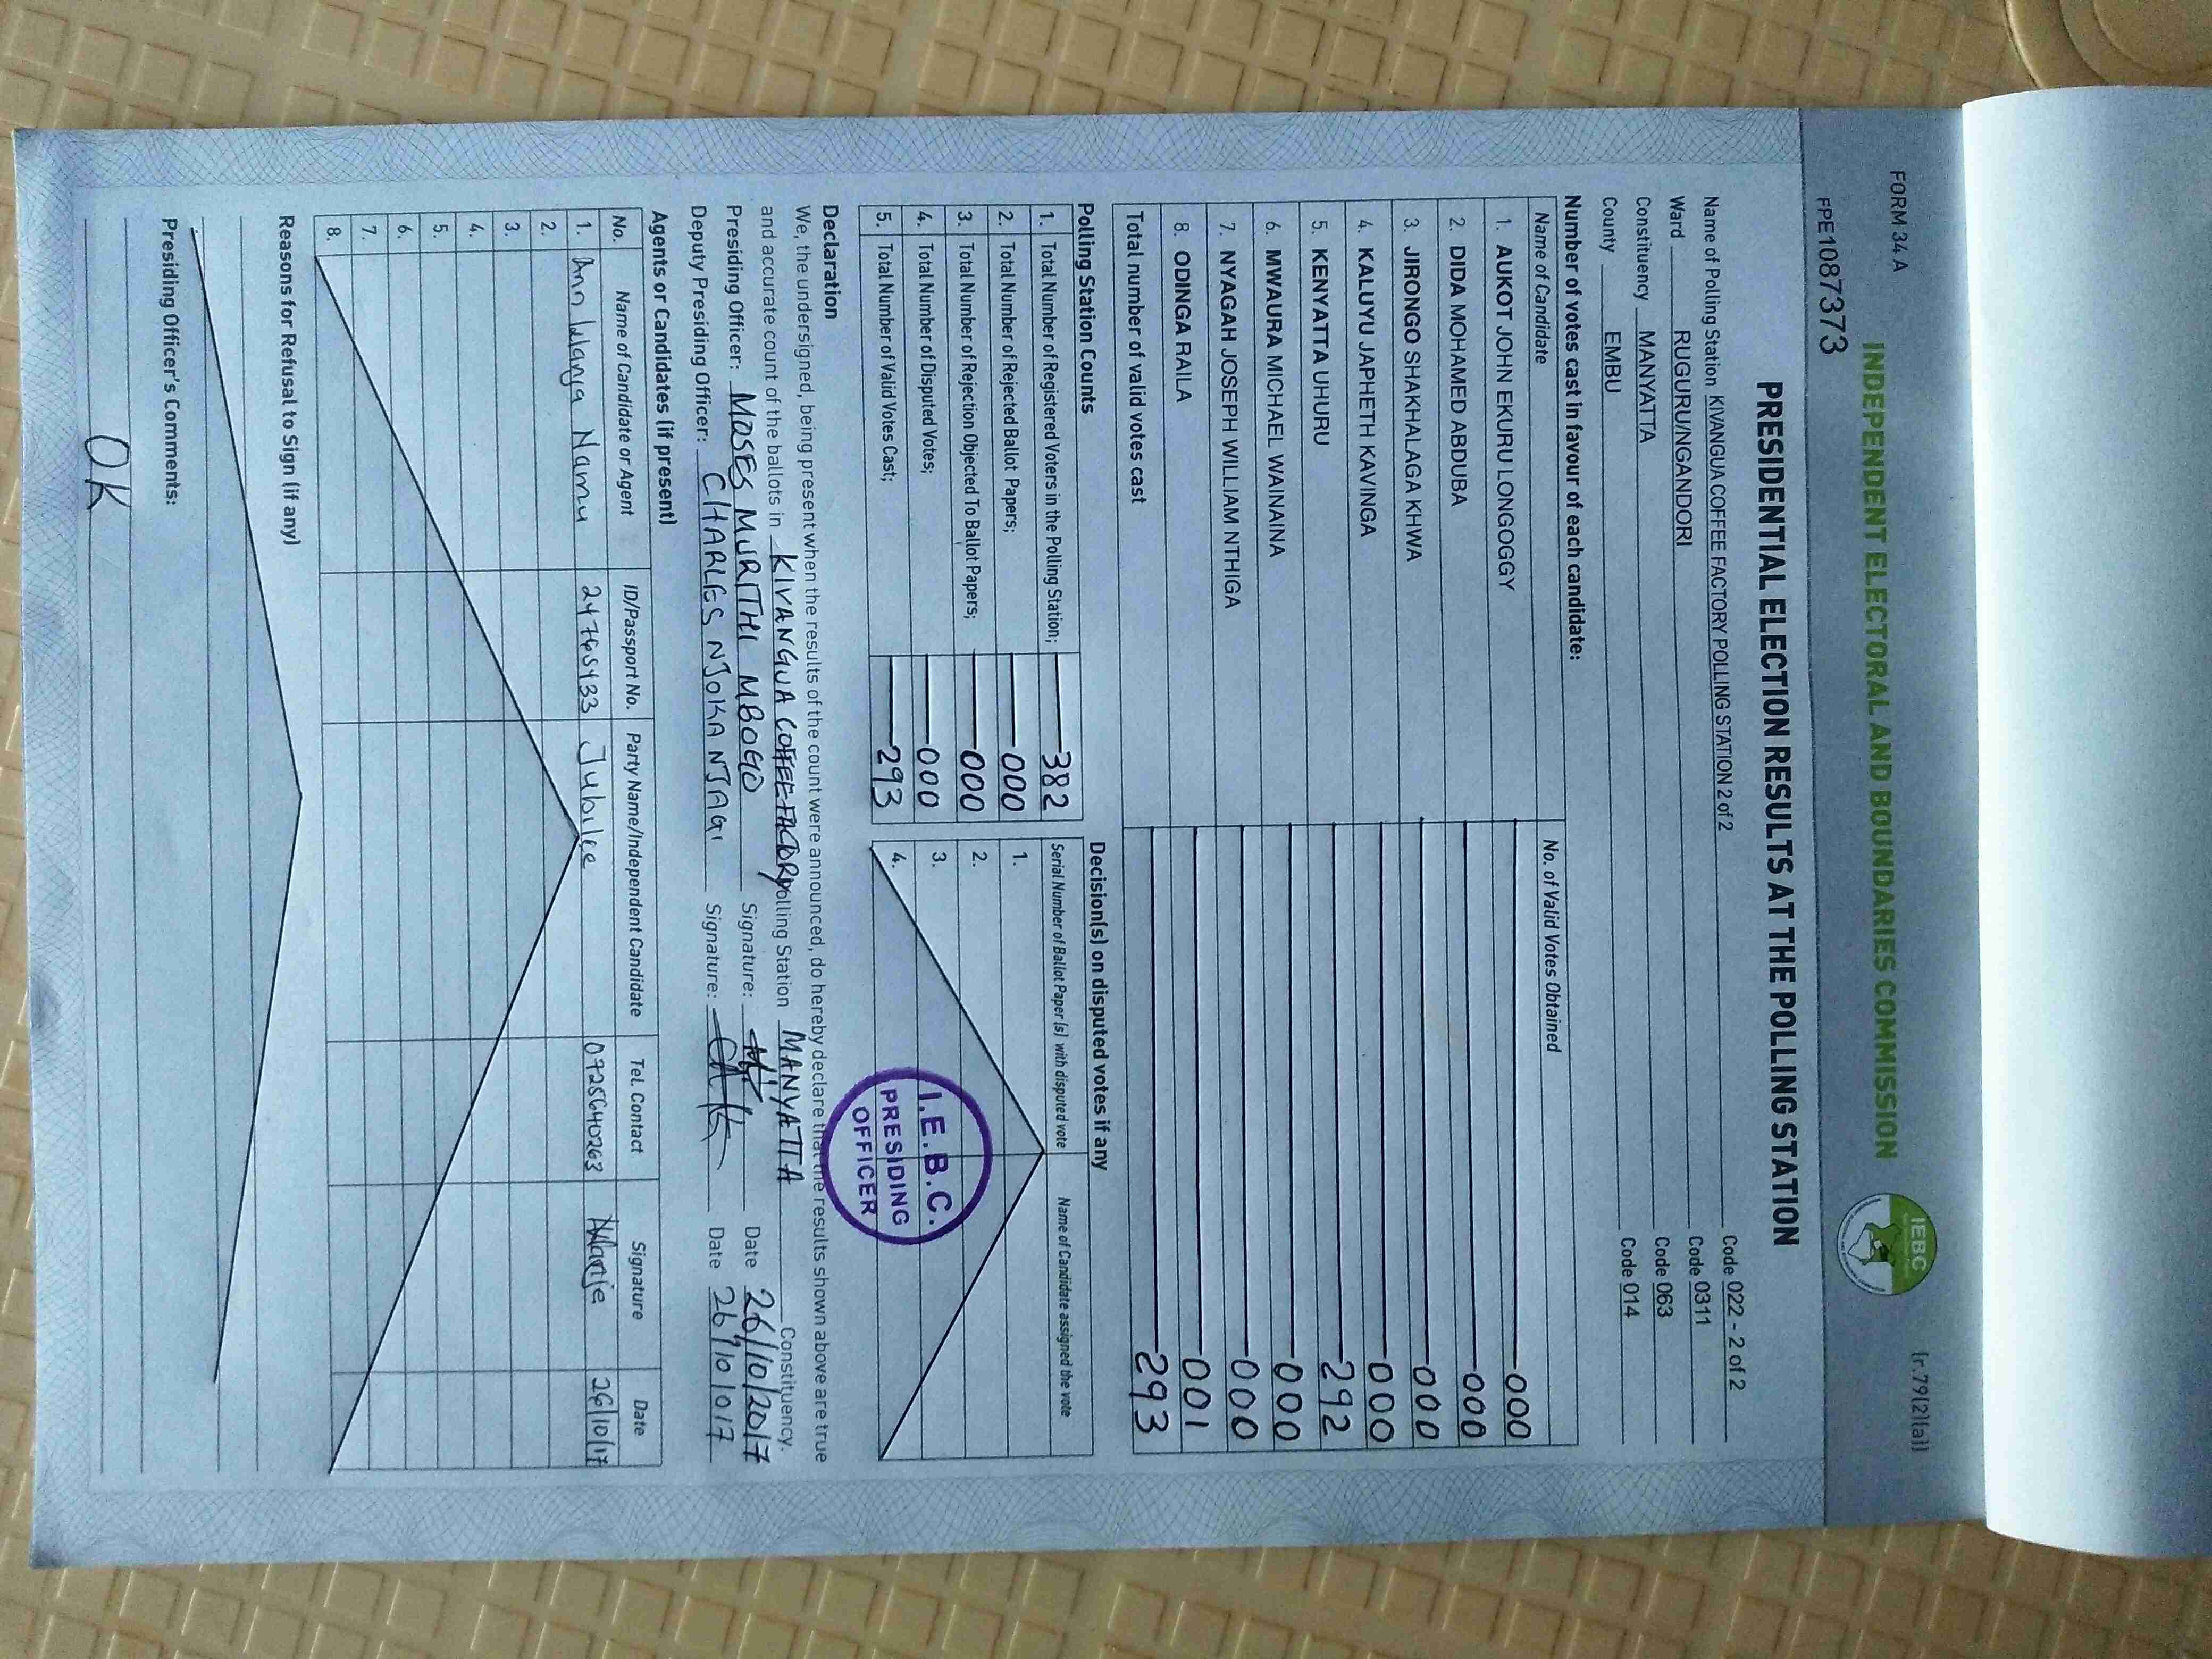 FORM 34 A
INDEPENDENT ELECTORAL AND BOUNDARIES COMMISSION
IEBC
(r.79(2)(a))
FPE1087373
PRESIDENTIAL ELECTION RESULTS AT THE POLLING STATION
Name of Polling Station KIVANGUA COFFEE FACTORY POLLING STATION 2 of 2 Code 022 - 2 of 2
Ward RUGURU/NGANDORI Code 0311
Constituency MANYATTA Code 063
County EMBU Code 014
Number of votes cast in favour of each candidate:
Name of Candidate No. of Valid Votes Obtained
1. AUKOT JOHN EKURU LONGOGGY 000
2. DIDA MOHAMED ABDUBA 000
3. JIRONGO SHAKHALAGA KHWA 000
4. KALUYU JAPHETH KAVINGA 000
5. KENYATTA UHURU 292
6. MWAURA MICHAEL WAINAINA 000
7. NYAGAH JOSEPH WILLIAM NTHIGA 000
8. ODINGA RAILA 001
Total number of valid votes cast 293
Polling Station Counts
1. Total Number of Registered Voters in the Polling Station; 382
2. Total Number of Rejected Ballot Papers; 000
3. Total Number of Rejection Objected To Ballot Papers; 000
4. Total Number of Disputed Votes; 000
5. Total Number of Valid Votes Cast; 293
Decision(s) on disputed votes if any
Serial Number of Ballot Paper (s) with disputed vote Name of Candidate assigned the vote
1.
2.
3.
4.
I.E.B.C.
PRESIDING
OFFICER
Declaration
We, the undersigned, being present when the results of the count were announced, do hereby declare that the results shown above are true
and accurate count of the ballots in KIVANGUA COFFEE FACTORY Polling Station MANYATTA Constituency.
Presiding Officer: MOSES MURITHI MBOGO Signature: Date 26/10/2017
Deputy Presiding Officer: CHARLES NJOKA NJAGI Signature: Date
Agents or Candidates (if present)
No. Name of Candidate or Agent ID/Passport No. Party Name/Independent Candidate Tel. Contact Signature Date
1. Ann Wanja Namu Jubilee 26/10/17
2.
3.
4.
5.
6.
7.
8.
Reasons for Refusal to Sign (if any)
Presiding Officer's Comments:
OK